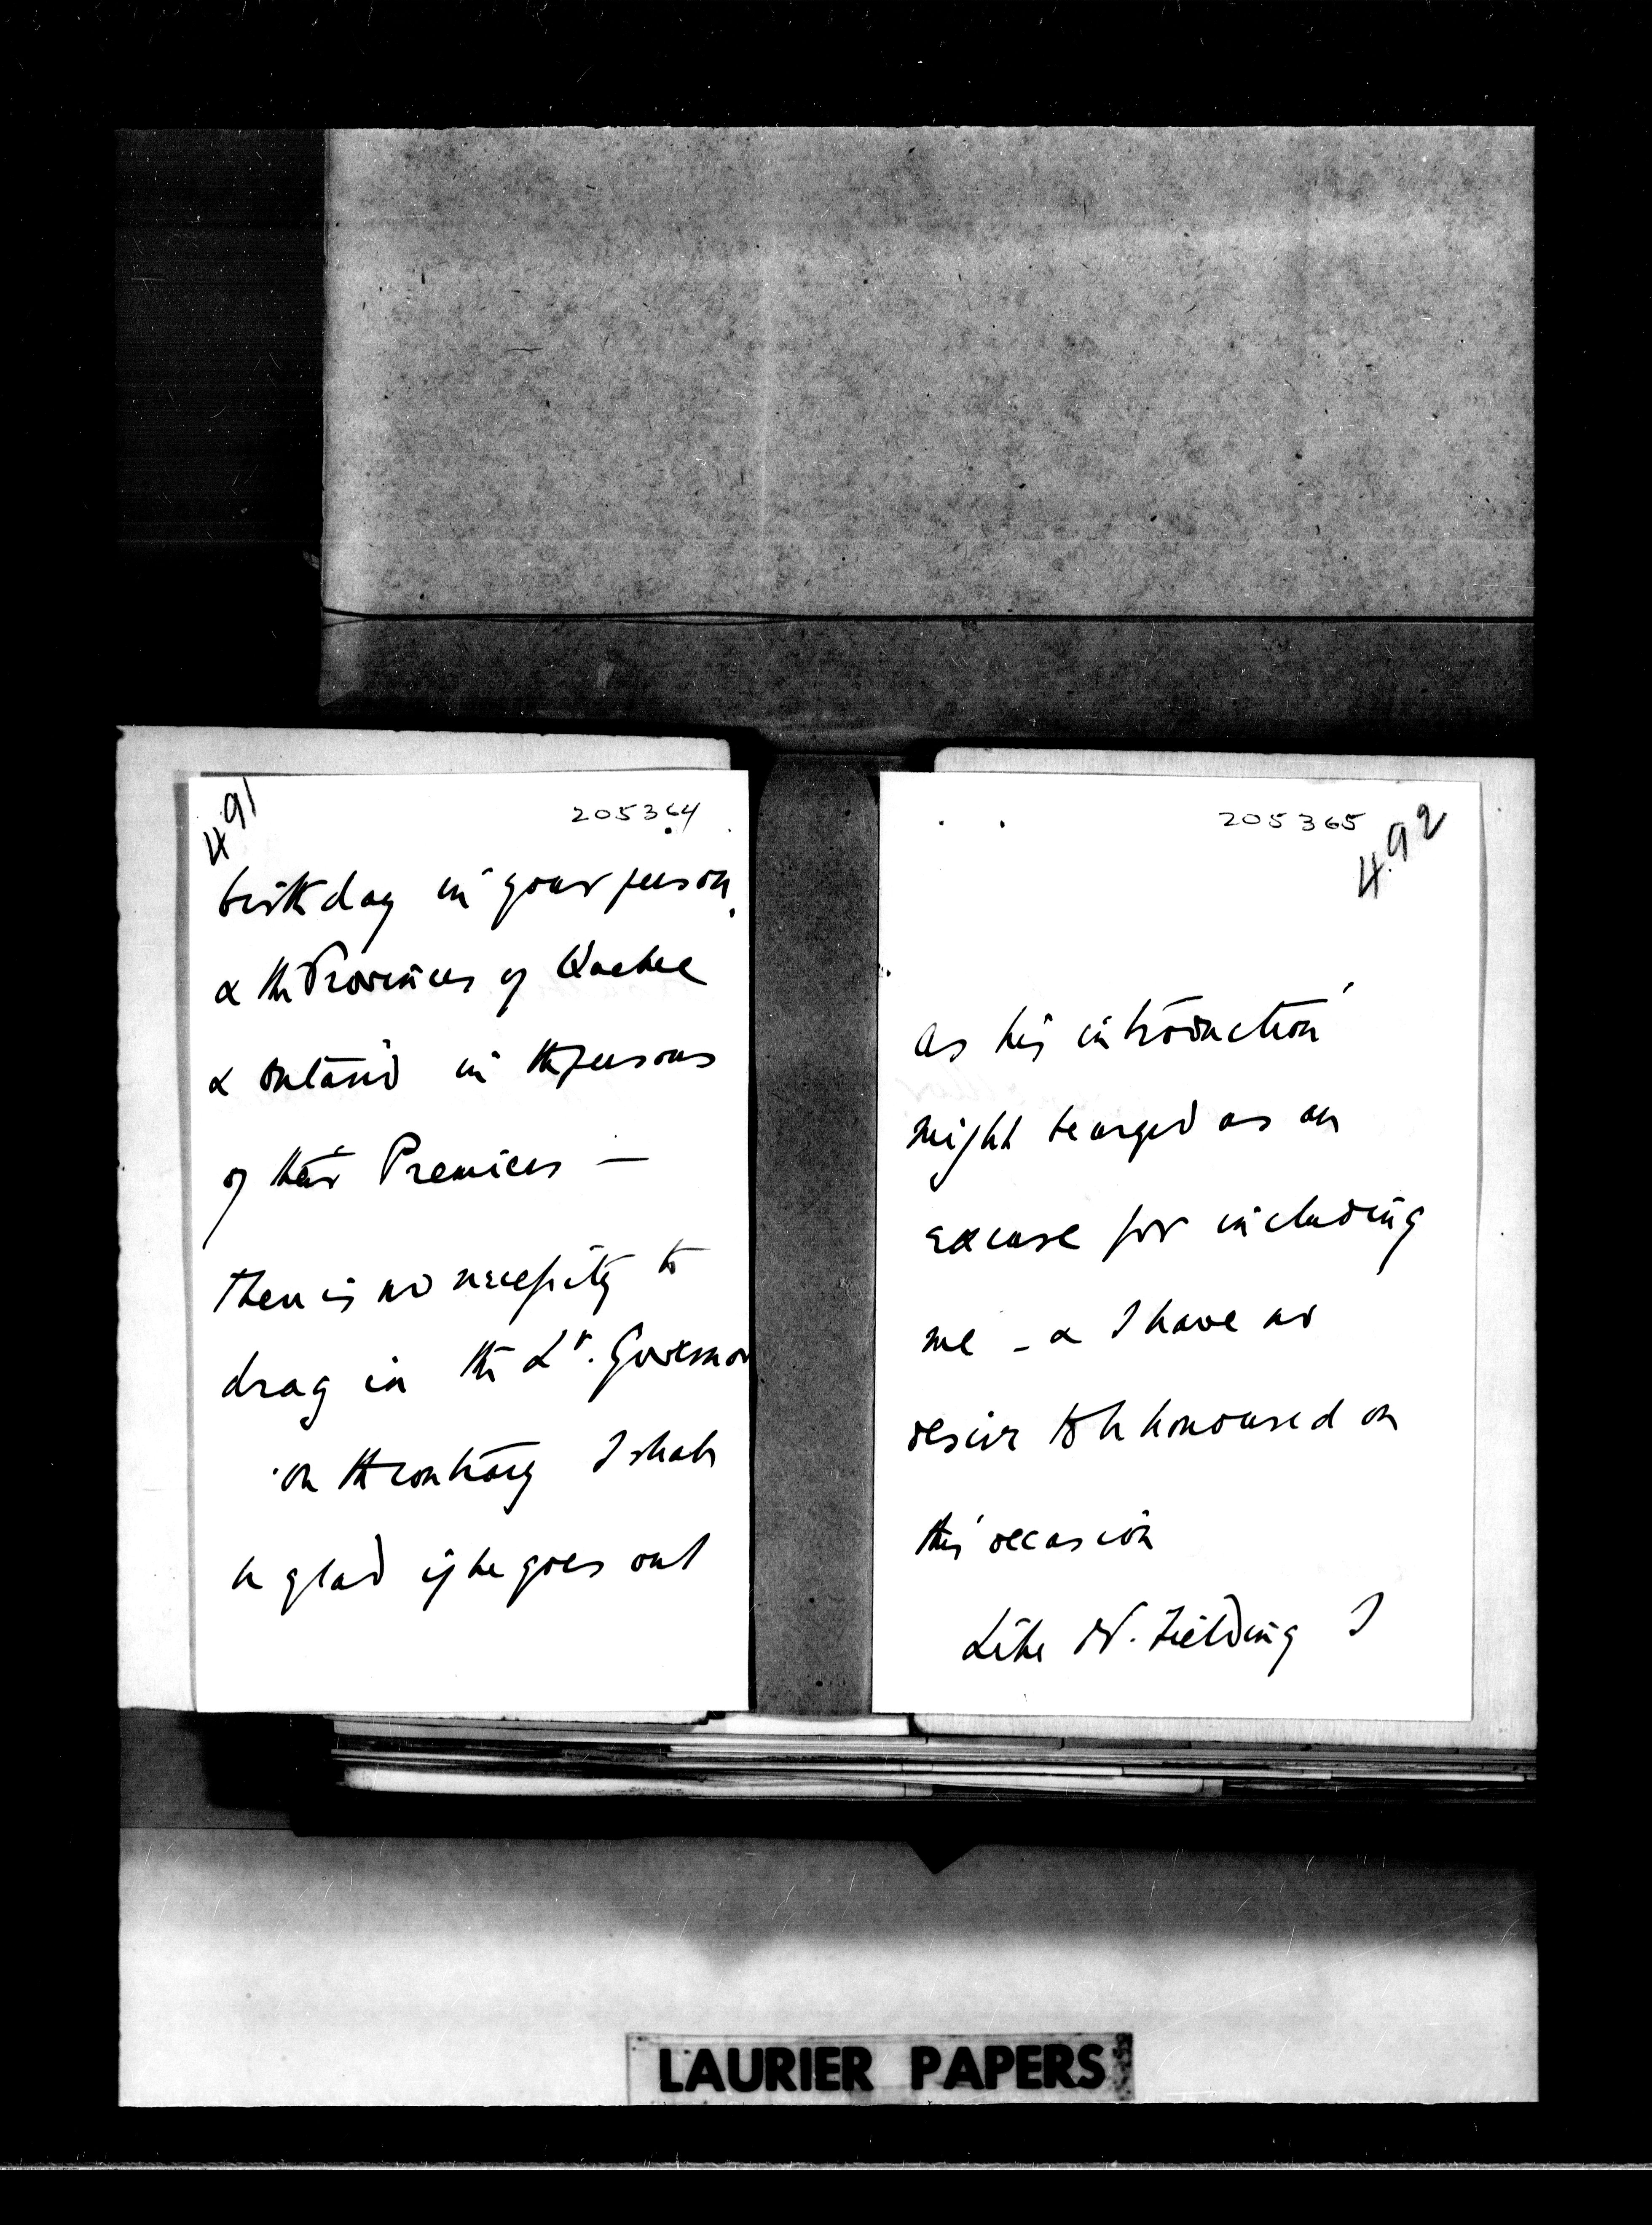 491
205364
birthday in your person
& the Provinces of Quebec
& Ontario in the persons
of their Premiers —
There is no necessity to
drag in the Lt. Governor
on the contrary I shall
be glad if he goes out
205365
492
as his introduction
might be urged as an
excuse for including
me - & I have no
desire to be honoured on
this occasion
Like Mr. Fielding I
LAURIER PAPERS